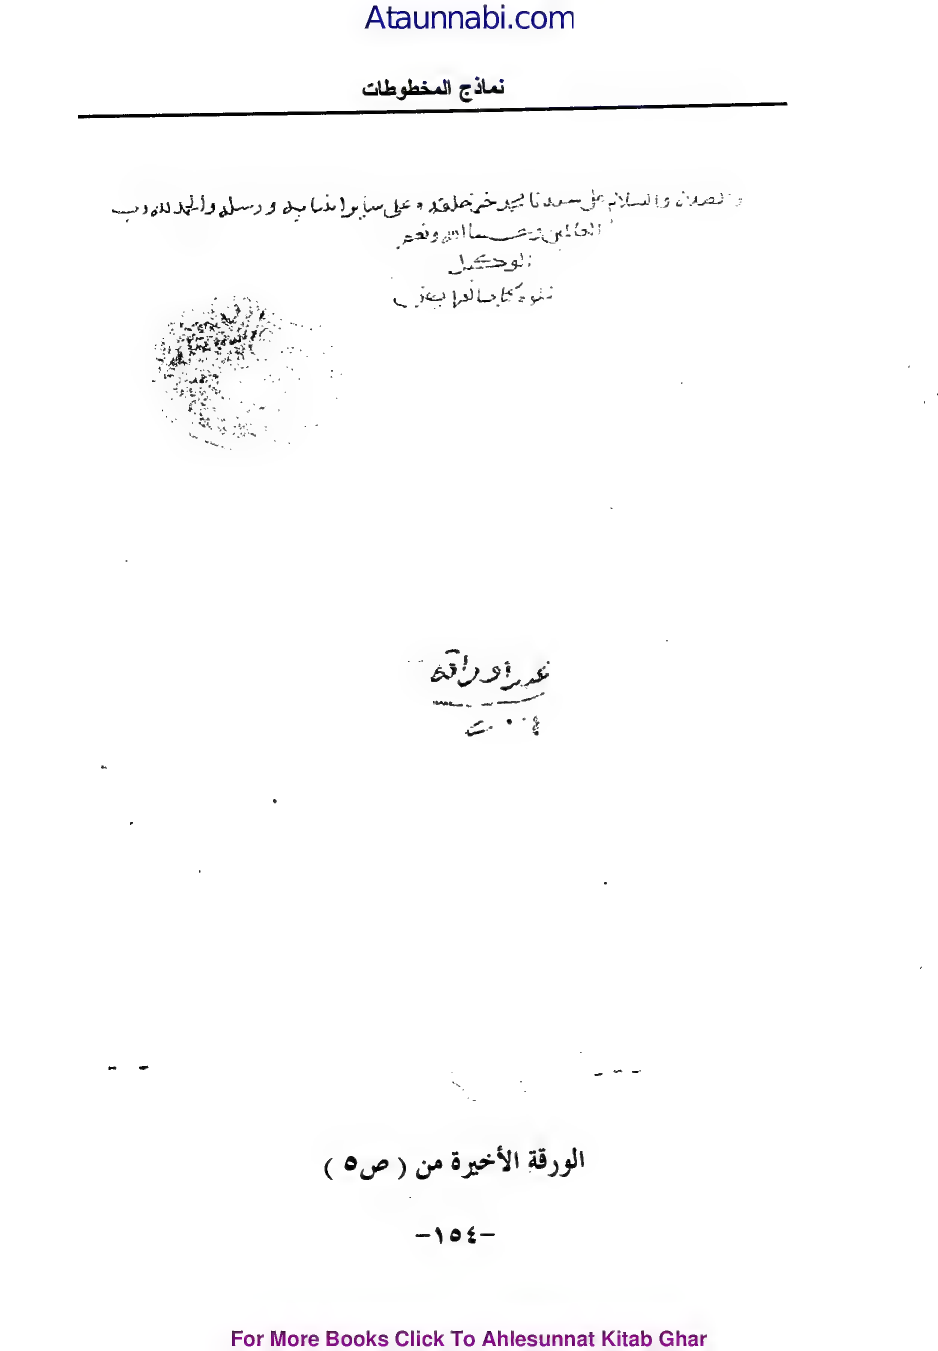 Ataunnabi.com
نماذج المخطوطات
والصلاة والسلام على سيدنا محمد خير خلقه وعلى سائر انبيايه ورسله والحمد لله رب
العالمين وحسبنا الله ونعم
الوكيل
عدد اوراقه
الورقة الأخيرة من ( ص٥ )
–١٥٤–
For More Books Click To Ahlesunnat Kitab Ghar